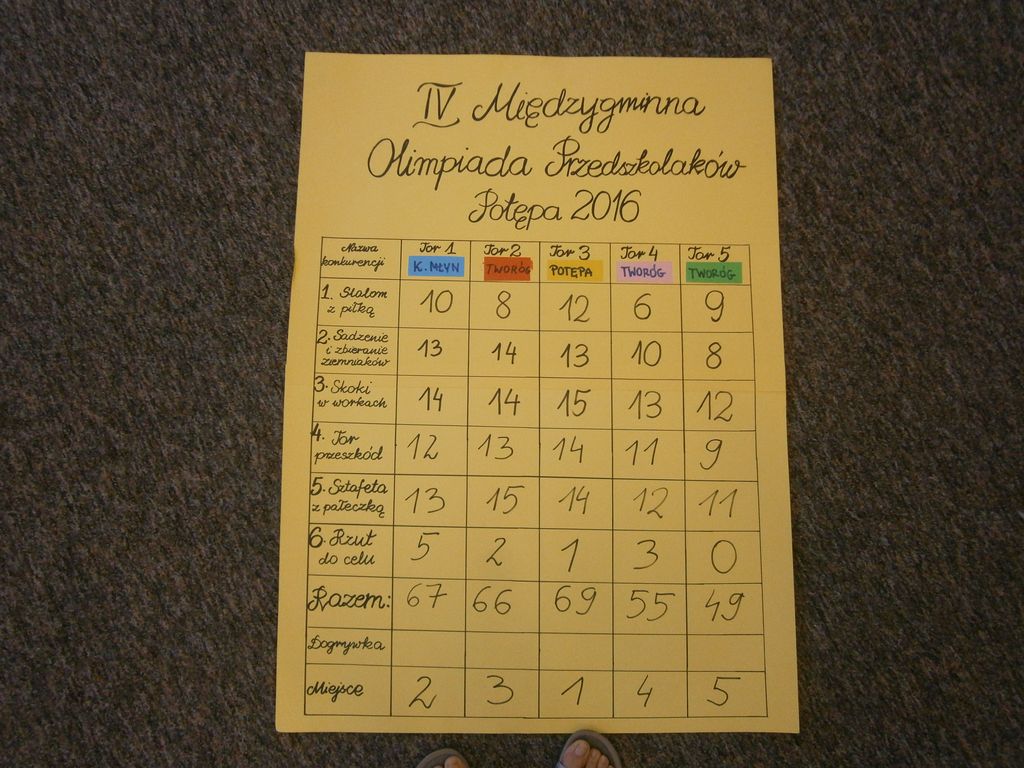 IV Międzygminna
Olimpiada Przedszkolaków
Potępa 2016
Nazwa konkurencji Tor 1 K. MŁYN Tor 2 TWORÓG Tor 3 POTĘPA Tor 4 TWORÓG Tor 5 TWORÓG
1. Slalom z piłką 10 8 12 6 9
2. Sadzenie i zbieranie ziemniaków 13 14 13 10 8
3. Skoki w workach 14 14 15 13 12
4. Tor przeszkód 12 13 14 11 9
5. Sztafeta z pałeczką 13 15 14 12 11
6. Rzut do celu 5 2 1 3 0
Razem: 67 66 69 55 49
Dogrywka
Miejsce 2 3 1 4 5